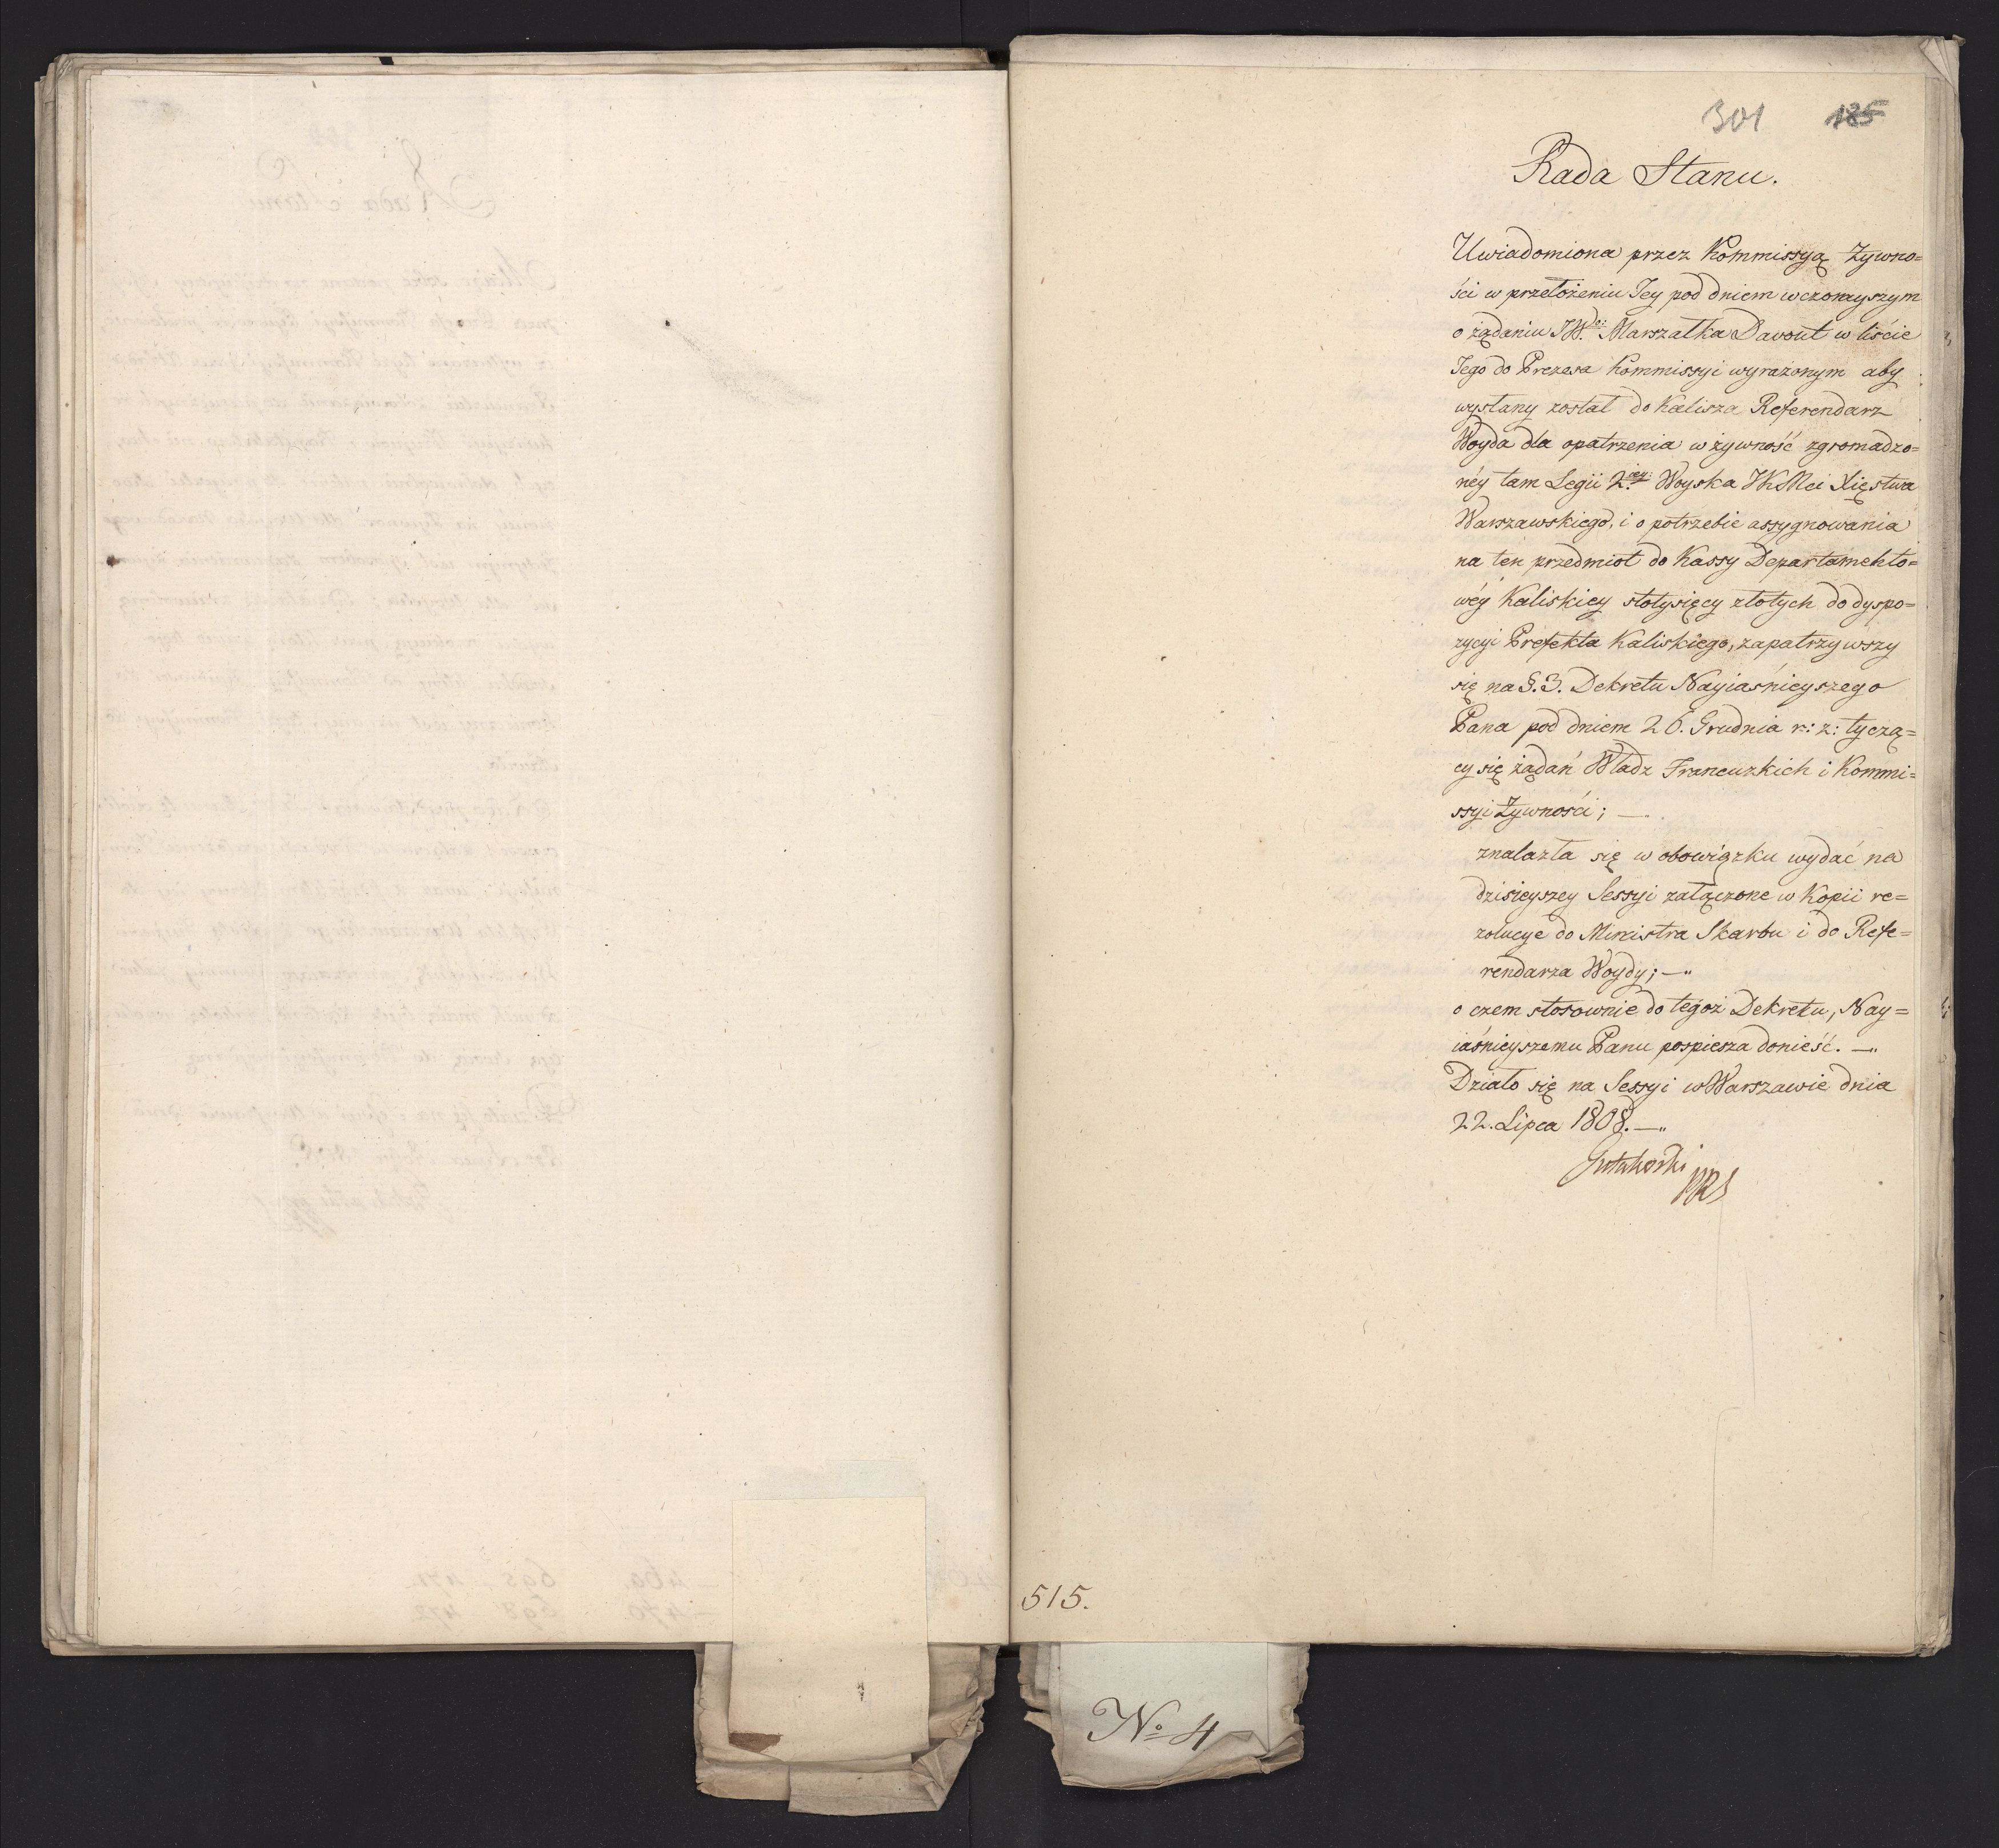 301 185
Rada Stanu.
Uwiadomiona przez Kommissyą Żywno=
ści w przełożeniu Jey pod dniem wczorayszym
o żądaniu JW. Marszałka Davout w liście
Jego do Prezesa Kommissyi wyrażonym aby
wysłany został do Kalisza Referendarz
Woyda dla opatrzenia w żywność zgromadzo=
néy tam Legii 2.iey Woyska JKMci Xięstwa
Warszawskiego, i o potrzebie assygnowania
na ten przedmiot do Kassy Departamento=
wéy Kaliskiey stotysięcy złotych do dyspo=
zycyi Prefekta Kaliskiego, zapatrzywszy
się na §. 3. Dekretu Nayiaśnieyszego
Pana pod dniem 26. Grudnia r: z: tyczą=
cy się żądań Władz Francuzkich i Kommi=
ssyi Żywności; —
znalazła się w obowiązku wydać na
dzisieyszey Sessyi załączone w Kopii re=
zolucye do Ministra Skarbu i do Refe=
rendarza Woydy; —"
o czem stosownie do tegoż Dekretu, Nay=
iaśnieyszemu Panu pospiesza donieść. —"
Działo się na Sessyi w Warszawie dnia
22. Lipca 1808. —"
Gutakowski
PRS
515.
No 4